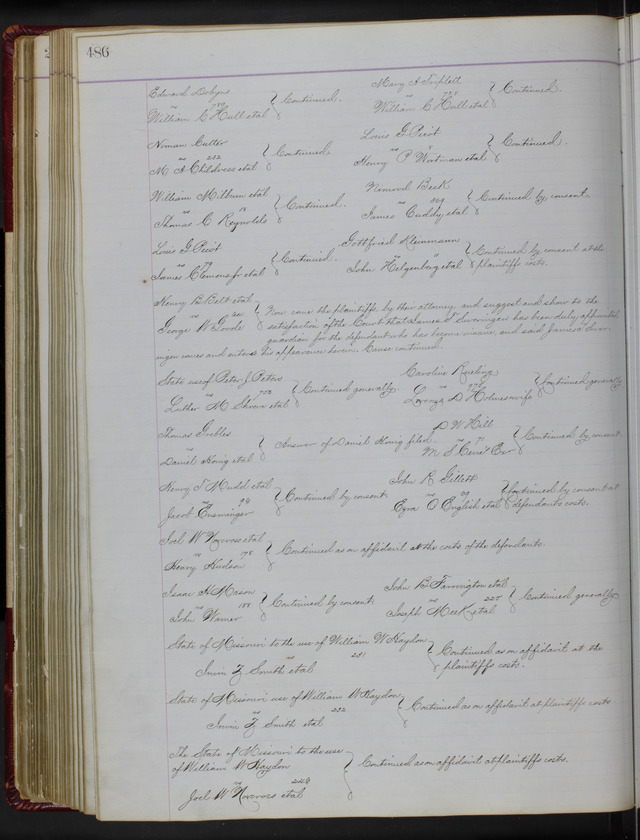 486
Edward Dobyns
vs 780
William C Hull etal
Continued.
Mary A Triplett
vs 781
William C Hull etal
Continued.
Norman Cutter
vs 252
M A Childress etal
Continued.
Louis G Picot
vs
Henry P Wortman etal
Continued.
William Milburn etal
vs
Thomas C Reynolds
Continued.
Nimrod Beck
vs
James Cuddy etal
Continued by consent.
Louis G Picot
vs 79
James Clemens jr etal
Continued.
Gottfried
vs
John etal
Continued by consent at the
plaintiffs costs.
Henry B Belt etal
vs
George W Goode
Now come the plaintiffs by their attorney, and suggest and show to the
satisfaction of the Court that James S has been duly appointed
guardian for the defendant who has become insane, and said James S
comes and enters his appearance herein. Cause continued.
State use of Peter J Peters
vs
Luther M etal
Continued generally.
Caroline
vs
Lorenzo D Holmes wife
Continued generally
Thomas Grebles
vs
Daniel Konig etal
Answer of Daniel Konig filed.
P W Hill
vs
M S Exr
Continued by consent.
Henry T Mudd etal
vs 94
Jacob Ensminger
Continued by consent.
John R Gillett
vs 29
Ezra O English etal
Continued by consent at
defendants costs.
Joel W Norcross etal
vs 78
Henry Hudson
Continued as on affidavit at the costs of the defendants.
Isaac H Mason
vs 188
John Warner
Continued by consent.
John B Farrington etal
vs 225
Joseph Meek etal
Continued generally
State of Missouri to the use of William W Haydon
vs 281
Irwin Z Smith etal
Continued as on affidavit at the
plaintiffs costs.
State of Missouri use of William W Haydon
vs 282
Irwin Z Smith etal
Continued as on affidavit at plaintiffs costs
The State of Missouri to the use
of William W Haydon
vs
Joel W Norcross etal
Continued as on affidavit at plaintiffs costs.